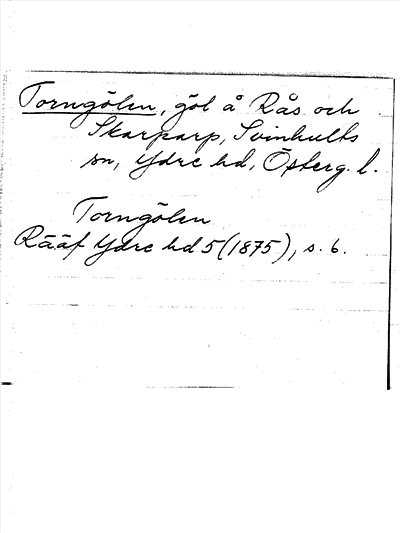 Torngölen, göl å Rås och
Skarparp, Svinhults
sn, Ydre hd, Österg. l.
Torngölen
Rääf Ydre hd 5 (1875), s. 6.